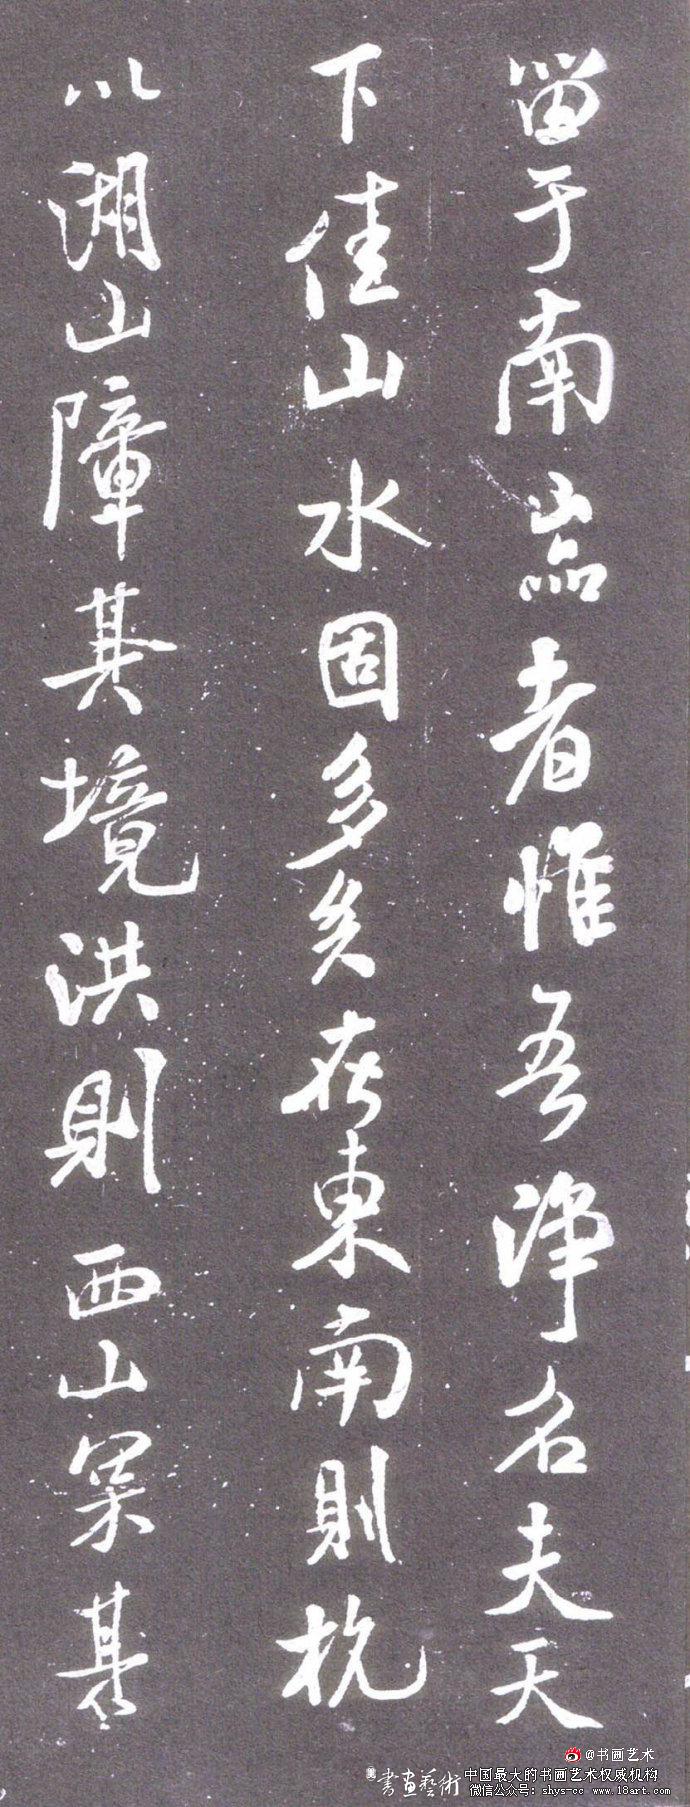 留于南岳者惟吾净名夫天
下佳山水固多矣在東南則杭
以湖山障其境洪則西山累其
@书画艺术
書畫藝術 中国最大的书画艺术权威机构
微信公众号：shys-cc www.18art.com